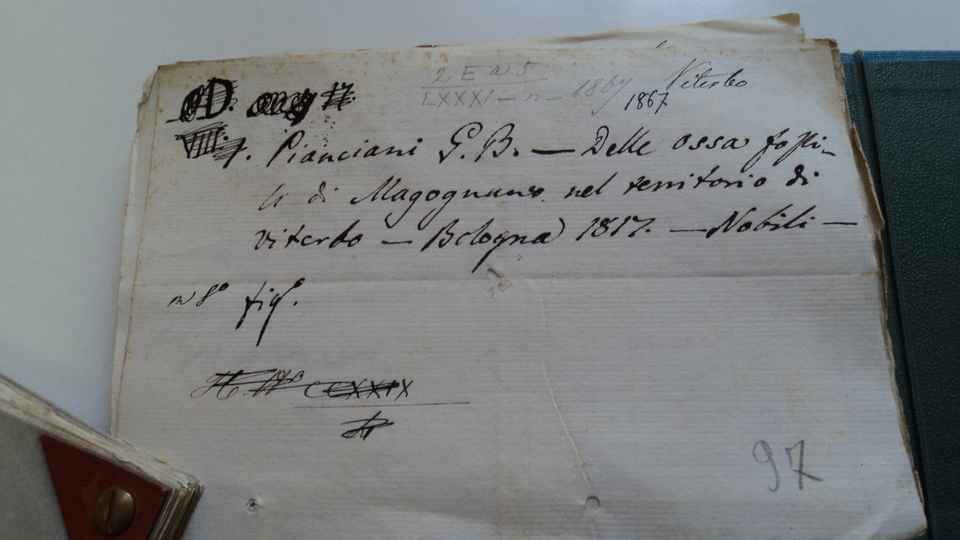 2. E a 5
LXXXI — n — 1867 Viterbo
1867
VIII. 7. Pianciani G.B. — Delle ossa fossi-
li di Magognano nel territorio di
Viterbo — Bologna 1817. — Nobili —
in 8º figº.
CCXXIX
97